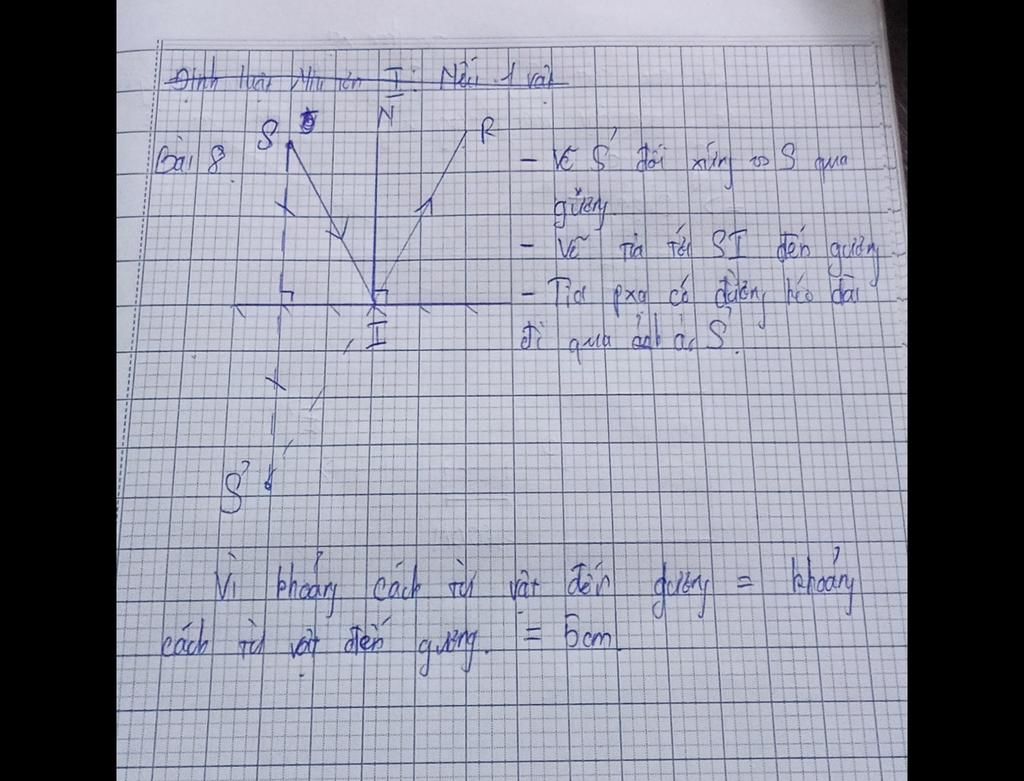 Định luật Niu tơn I: Nếu 1 vật
N
S
R
Bài 8
- Vẽ S' đối xứng S qua
gương.
- Vẽ tia tới SI đến gương
- Tia pxạ có đường kéo dài
đi qua ảnh ảo S'.
I
S'
Vì khoảng cách từ vật đến gương = khoảng
cách từ vật đến gương. = 5cm